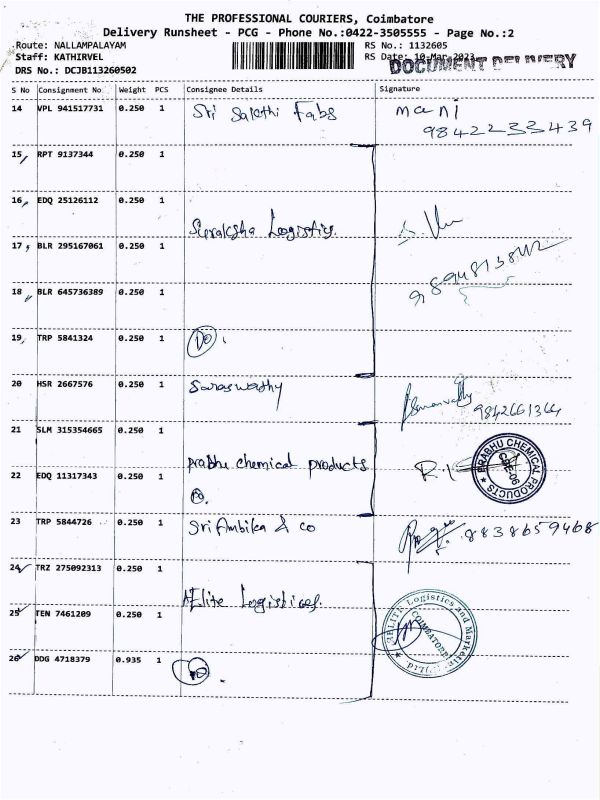 THE PROFESSIONAL COURIERS, Coimbatore
Delivery Runsheet - PCG - Phone No.:0422-3505555 - Page No.:2
Route: NALLAMPALAYAM
Staff: KATHIRVEL
DRS No.: DCJB113260502
RS No.: 1132605
RS Date: 10-Mar-2023
DOCUMENT DELIVERY
S No Consignment No Weight PCS Consignee Details Signature
14 VPL 941517731 0.250 1 Sri Sakthi Fabs mani
9842233439
15 RPT 9137344 0.250 1
16 EDQ 25126112 0.250 1
Suraksha Logistics.
17 BLR 295167061 0.250 1
18 BLR 645736389 0.250 1
19 TRP 5841324 0.250 1 Do.
20 HSR 2667576 0.250 1 Saraswathy
9842661364
21 SLM 315354665 0.250 1
prabhu chemical products
PRABHU CHEMICAL PRODUCTS
CBE-06
22 EDQ 11317343 0.250 1 Do.
23 TRP 5844726 0.250 1 Sri Ambika & co 8838659468
24 TRZ 275092313 0.250 1
Elite Logistices.
25 TEN 7461209 0.250 1
ELITE Logistics and
COIMBATORE
26 DDG 4718379 0.935 1 Do.